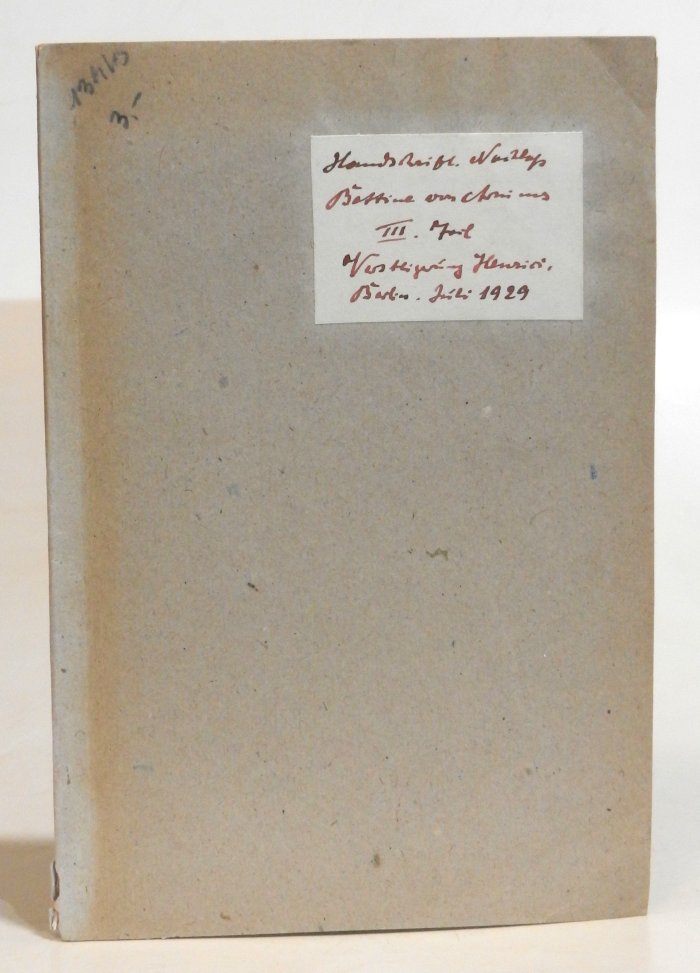 3.-
Handschriftl. Nachlaß
Bettine von Arnims
III. Teil
Versteigerung Henrici.
Berlin. Juli 1929